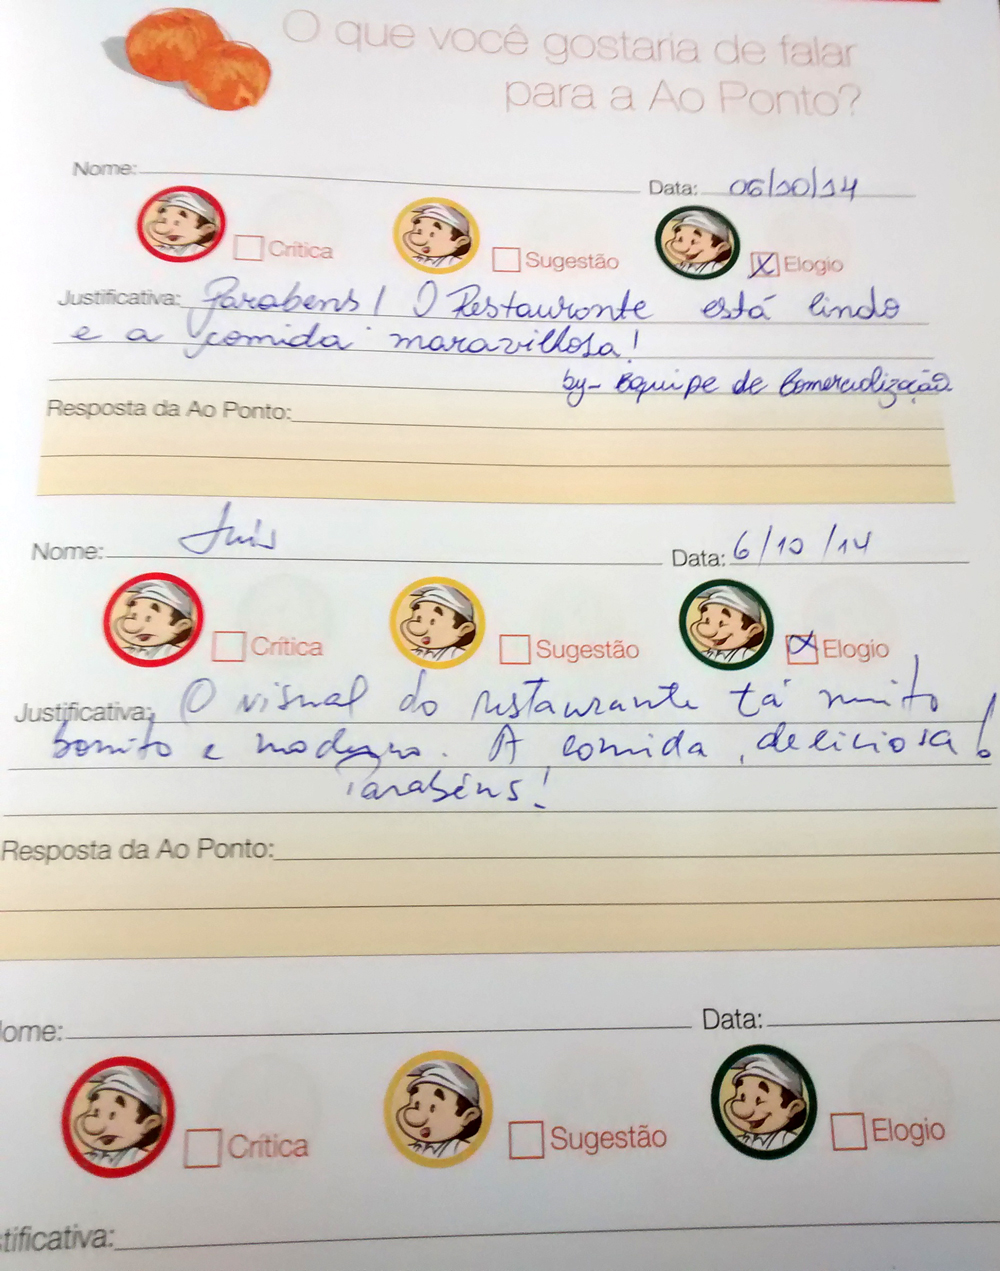 O que você gostaria de falar
para a Ao Ponto?
Nome: Data: 06/10/14
Crítica Sugestão X Elogio
Justificativa: Parabens! O Restaurante está lindo
e a comida maravilhosa!
by- Equipe de Comercialização
Resposta da Ao Ponto:
Nome: Luis Data: 6/10/14
Crítica Sugestão X Elogio
Justificativa: O visual do restaurante tá muito
bonito e moderno. A comida, deliciosa!
Parabéns!
Resposta da Ao Ponto:
ome: Data:
Crítica Sugestão Elogio
tificativa: